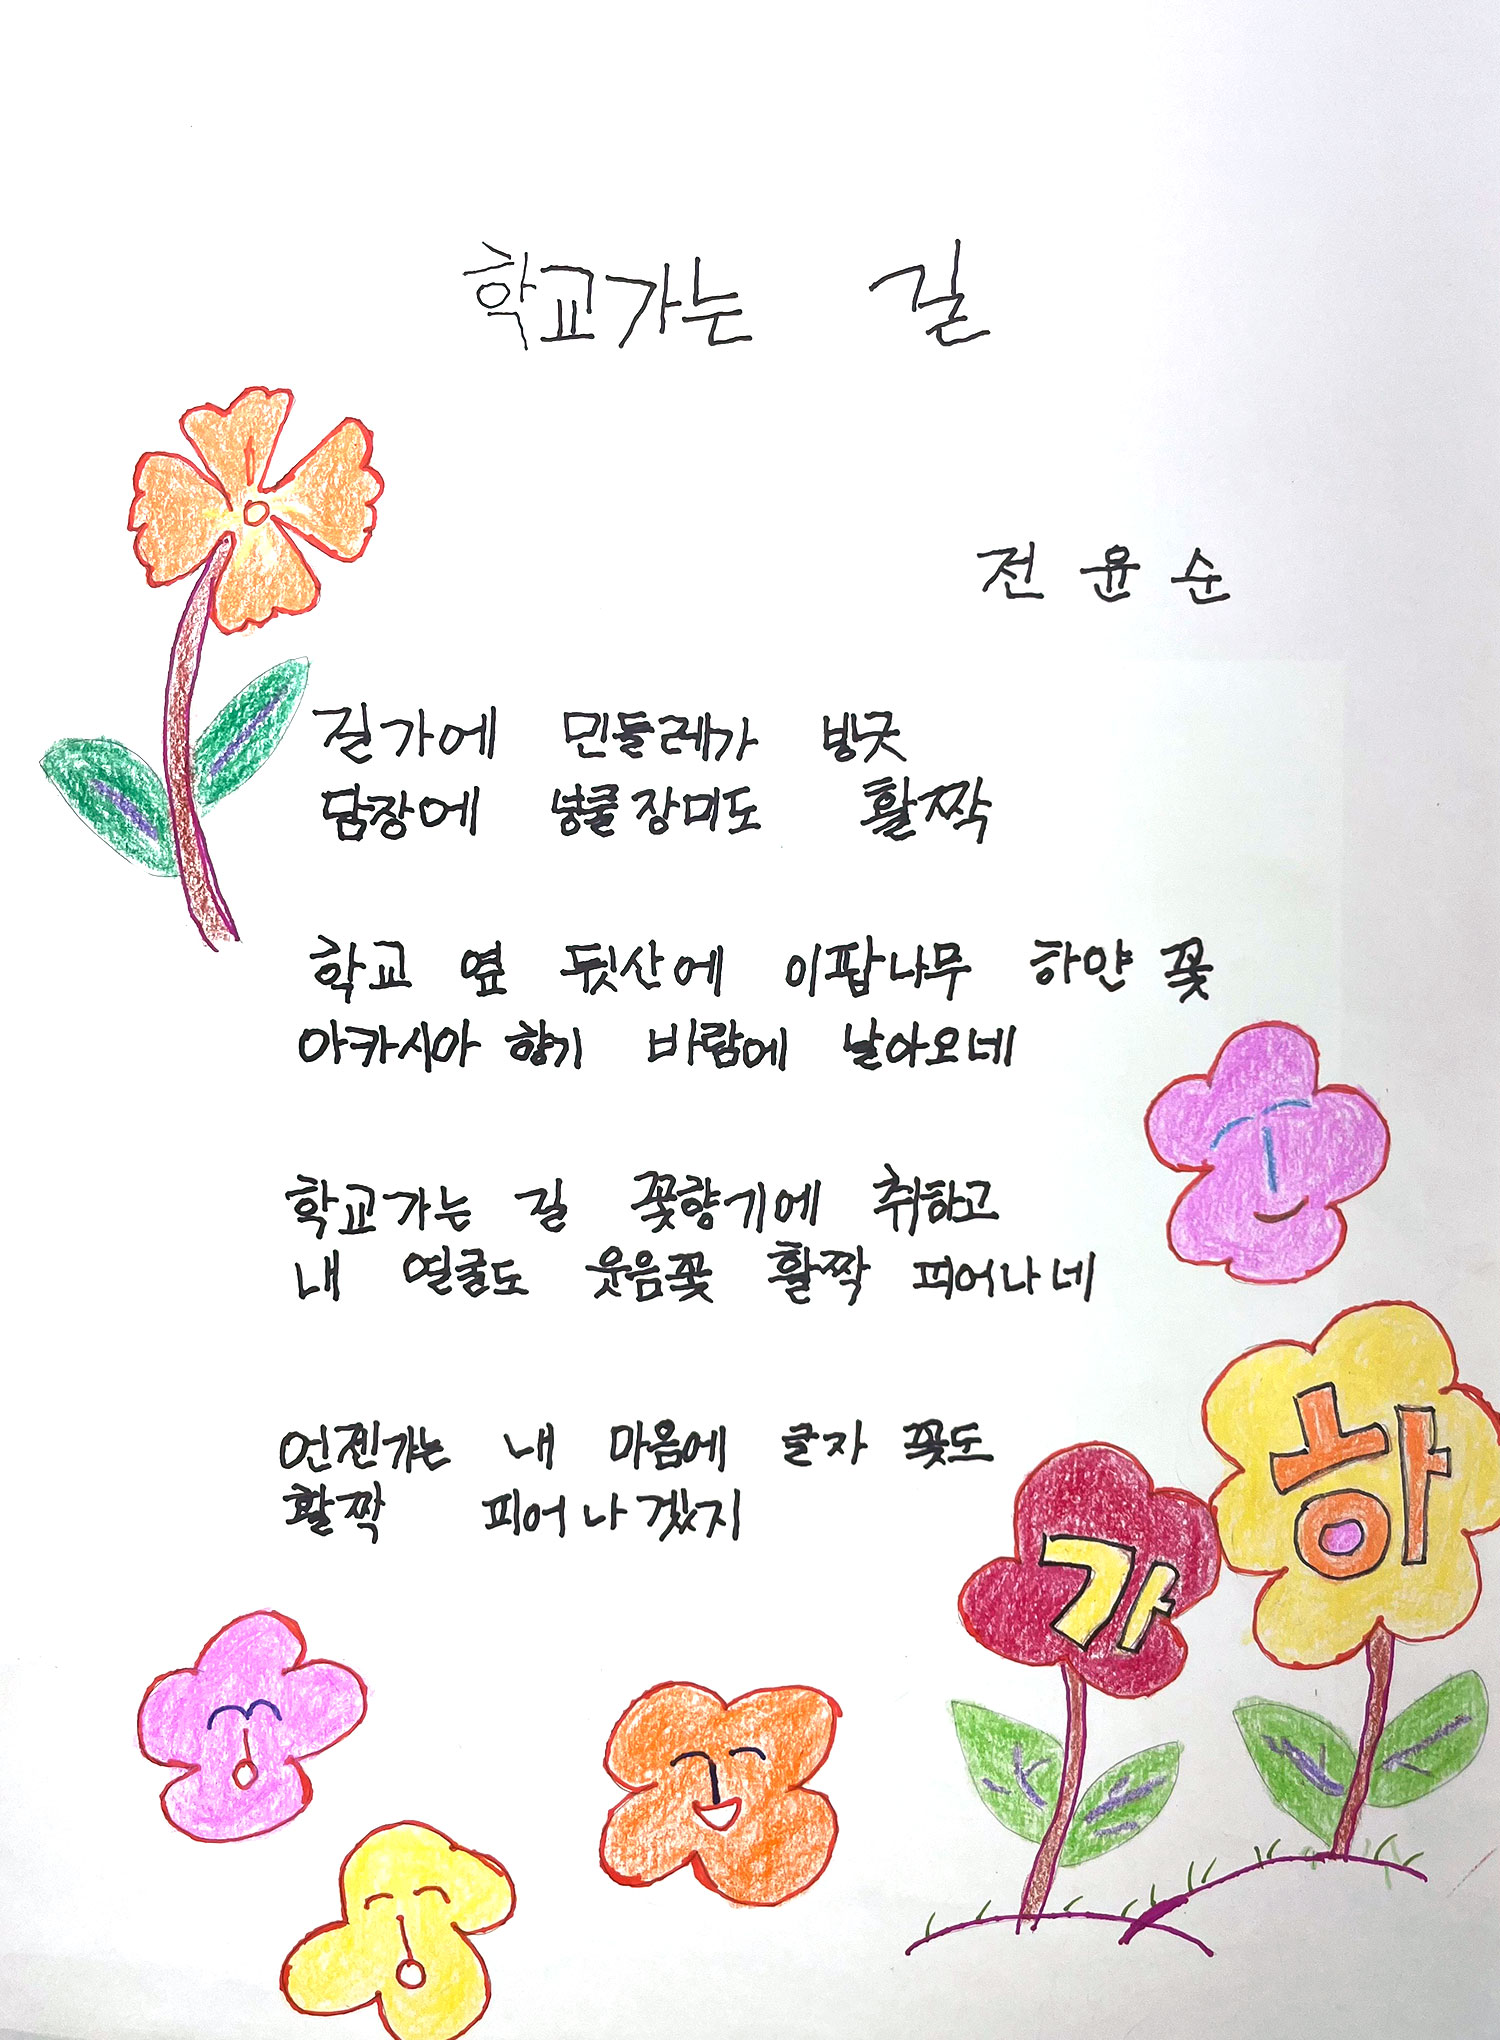 학교가는 길
전윤순
길가에 민들레가 방긋
담장에 넝쿨장미도 활짝
학교 옆 뒷산에 이팝나무 하얀 꽃
아카시아 향기 바람에 날아오네
학교가는 길 꽃향기에 취하고
내 얼굴도 웃음꽃 활짝 피어나네
언젠가는 내 마음에 글자 꽃도
활짝 피어나겠지
가
하